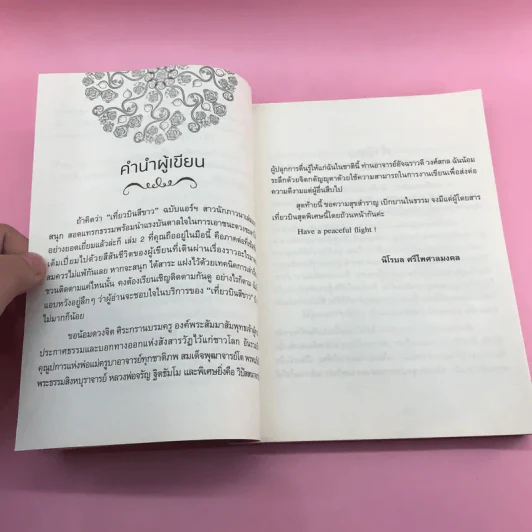 คำนำผู้เขียน
ถ้าคิดว่า “เที่ยวบินสีขาว” ฉบับแอร์ฯ สาวนักภาวนา
สนุก สอดแทรกธรรมพร้อมนำแรงบันดาลใจในการเอาชนะ
อย่างยอดเยี่ยมแล้วล่ะก็ เล่ม 2 ที่คุณถืออยู่ในมือนี้ คือภาคต่อที่
เต็มเปี่ยมไปด้วยสีสันชีวิตของผู้เขียนที่เดินผ่านเรื่องราว
สมควรไม่แพ้กันเลย หากจะสนุก ได้สาระ แฝงไว้ด้วยเทคนิคการ
ชวนติดตามแค่ไหนนั้น คงต้องเรียนเชิญติดตามกันดู อย่างไรก็ตาม
แอบหวังอยู่ลึกๆ ว่าผู้อ่านจะชอบใจในบริการของ “เที่ยวบินสีขาว”
ไม่มากก็น้อย
ขอน้อมดวงจิต ศิระกรานบรมครู องค์พระสัมมาสัมพุทธเจ้า
ประกาศธรรมและบอกทางออกแห่งสังสารวัฏไว้แก่ชาวโลก
คุณูปการแห่งพ่อแม่ครูบาอาจารย์ทุกชาติภพ สมเด็จพุฒาจารย์โต
พระธรรมสิงหบุราจารย์ หลวงพ่อจรัญ ฐิตธัมโม และพิเศษยิ่งคือ
ผู้ปลุกการตื่นรู้ให้แก่ฉันในชาตินี้ ท่านอาจารย์อัจฉราวดี วงศ์สกล ฉันน้อม
ระลึกด้วยจิตกตัญญุตาด้วยใช้ความสามารถในการงานเขียนเพื่อส่งต่อ
ความดีงามแด่ผู้อื่นสืบไป
สุดท้ายนี้ ขอความสุขสำราญ เบิกบานในธรรม จงมีแด่ผู้โดยสาร
เที่ยวบินสุดพิเศษนี้โดยถ้วนหน้ากันค่ะ
Have a peaceful flight !
นิโรบล ศรีไพศาลมงคล